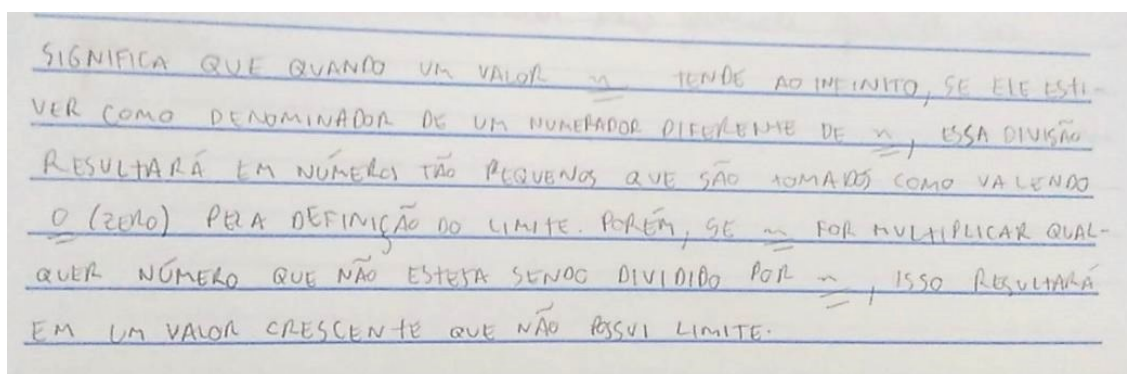 SIGNIFICA QUE QUANDO UM VALOR n TENDE AO INFINITO, SE ELE ESTI-
VER COMO DENOMINADOR DE UM NUMERADOR DIFERENTE DE n, ESSA DIVISÃO
RESULTARÁ EM NÚMEROS TÃO PEQUENOS QUE SÃO TOMADOS COMO VALENDO
0 (ZERO) PELA DEFINIÇÃO DO LIMITE. PORÉM, SE n FOR MULTIPLICAR QUAL-
QUER NÚMERO QUE NÃO ESTEJA SENDO DIVIDIDO POR n, ISSO RESULTARÁ
EM UM VALOR CRESCENTE QUE NÃO POSSUI LIMITE.